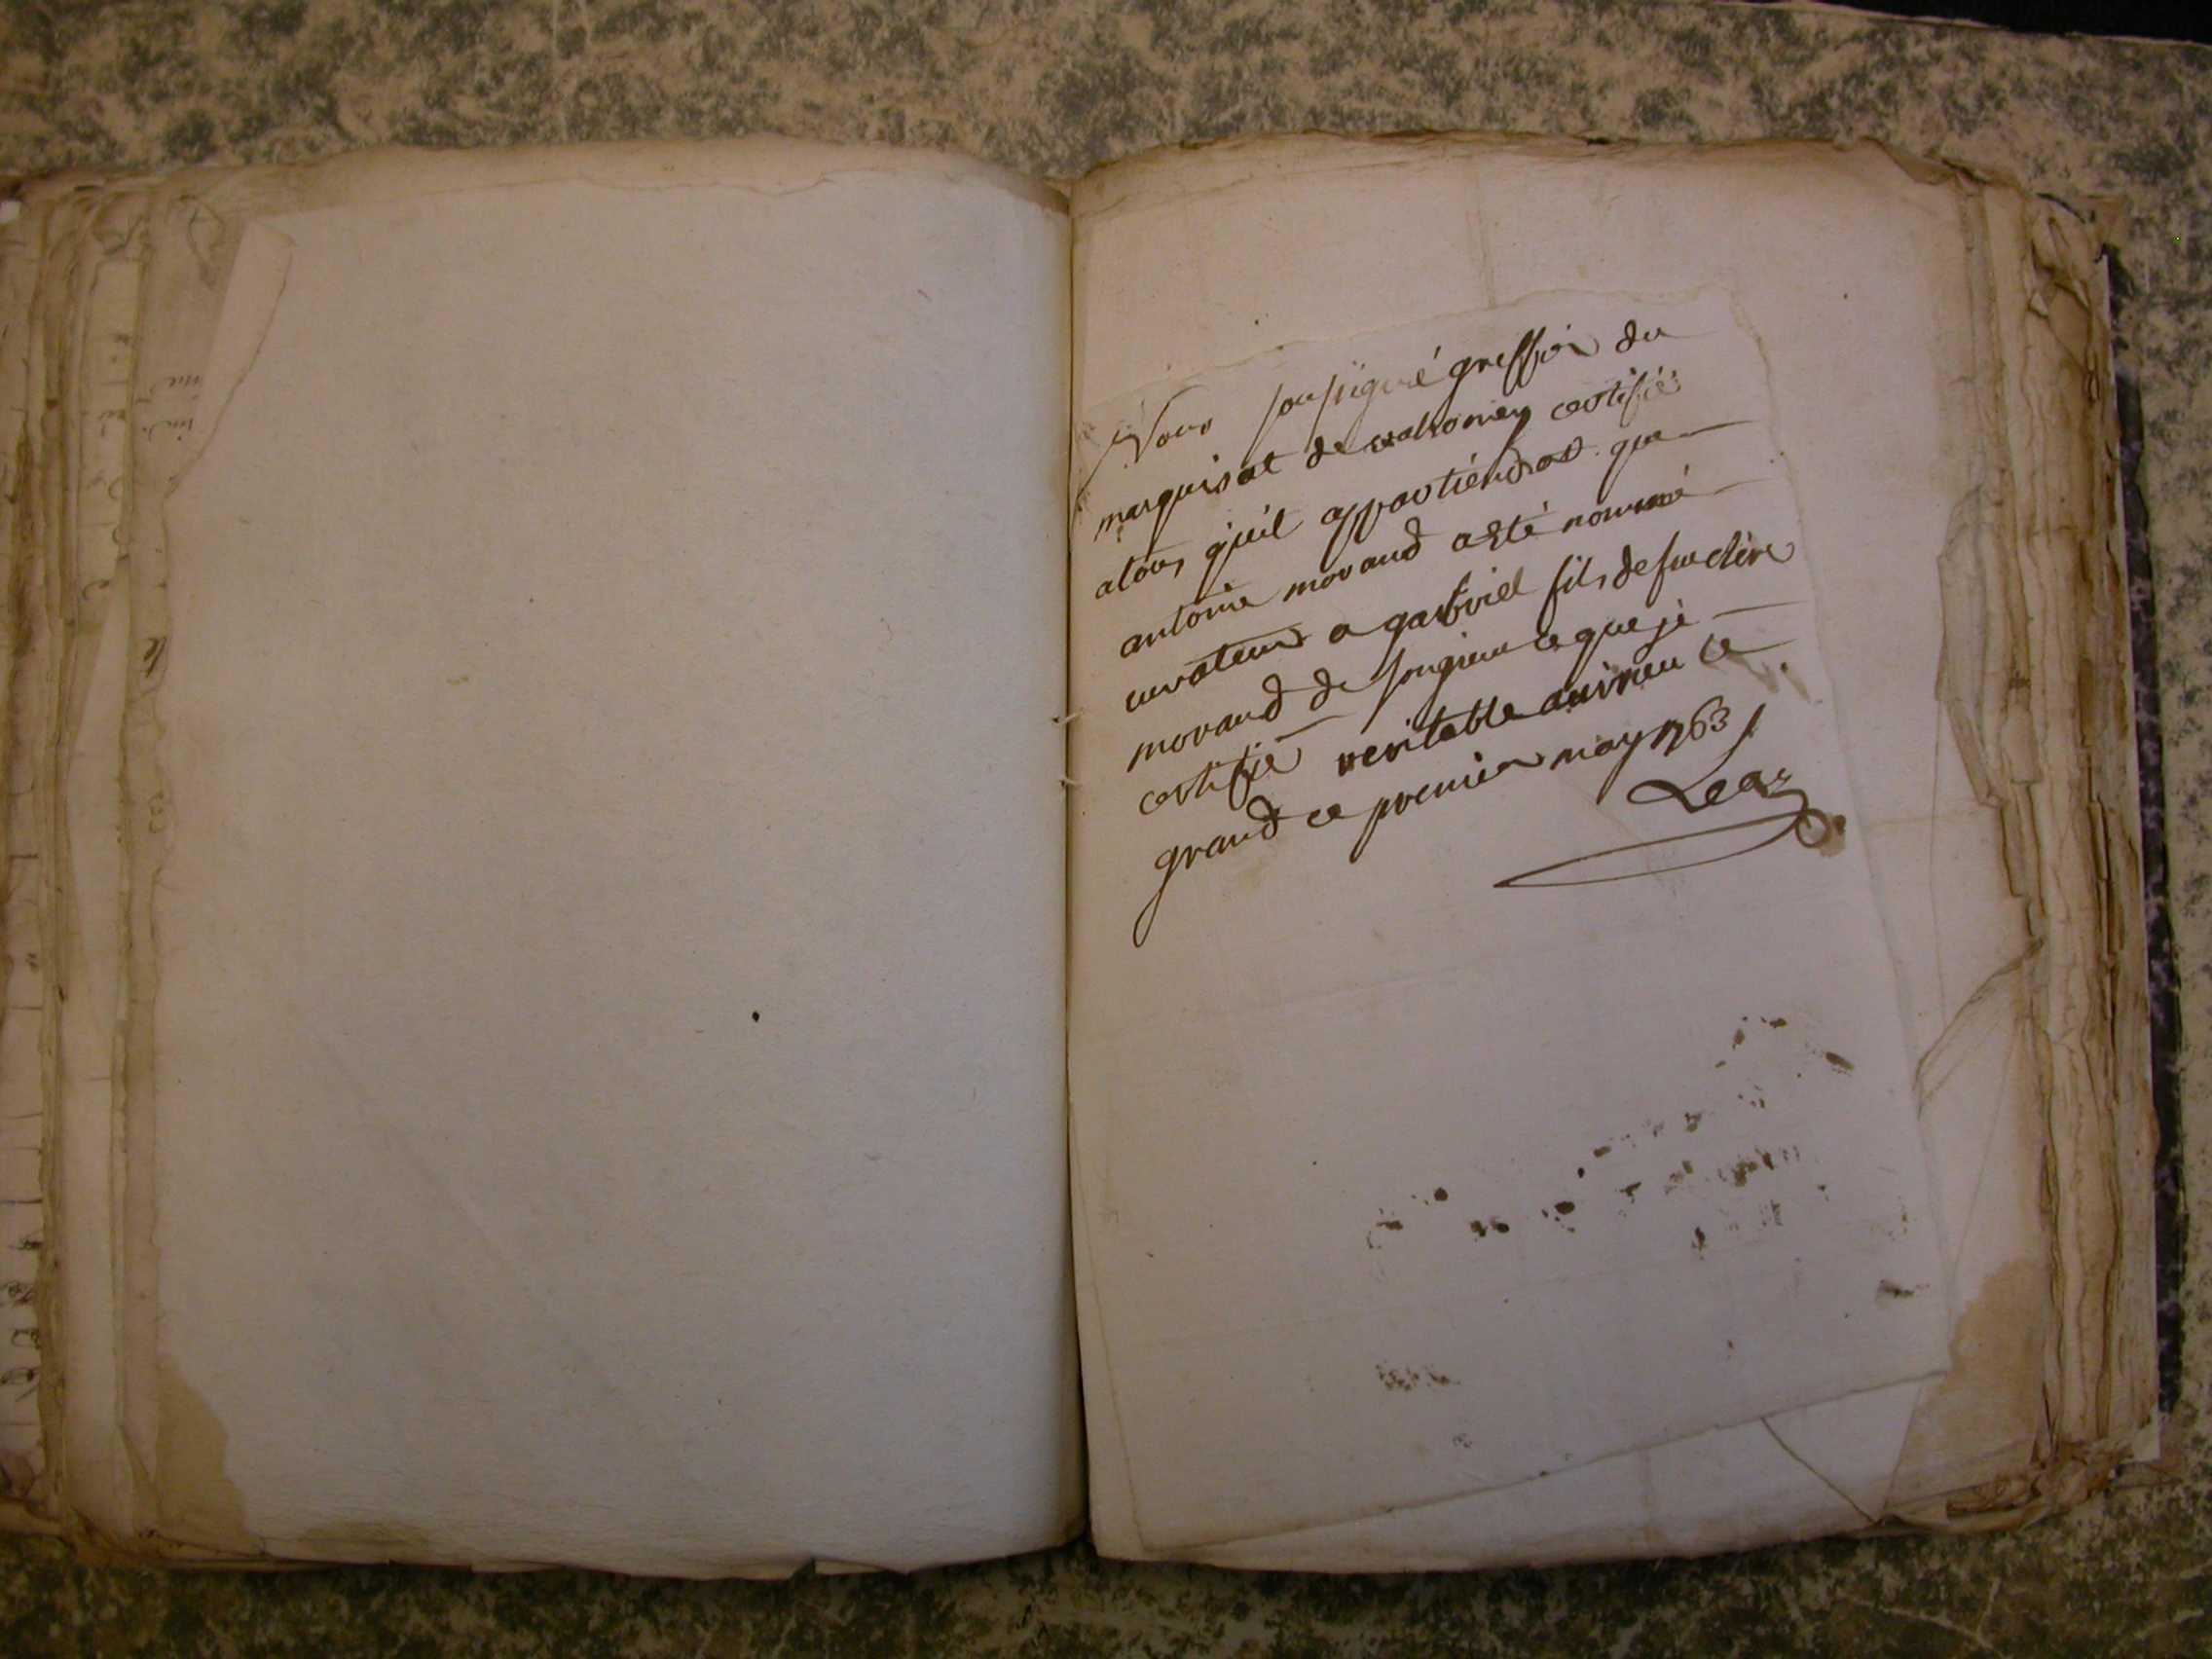 Nous soussigné greffier du
marquisat de valromey certifié
atous qu'il appartiendrat que
antoine morand a esté nommé
curateur a gasbriel fils de feu cleire
morand de songieu ce que je
certifie veritable au vieu le
grand ce premier may 1763 /.